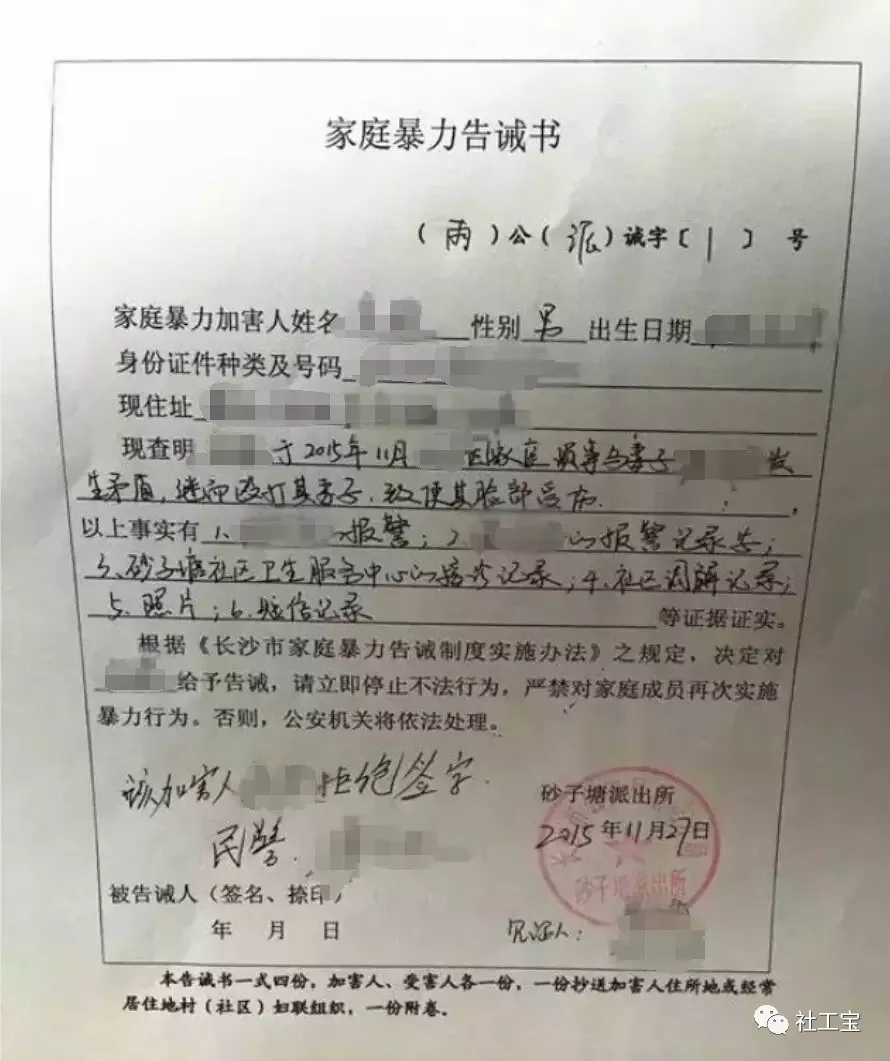 家庭暴力告诫书
(雨)公(派)诫字〔1〕号
家庭暴力加害人姓名 性别 男 出生日期
身份证件种类及号码
现住址
现查明 于2015年11月 因家庭琐事与妻子 发
生矛盾,继而殴打其妻子,致使其脸部受伤.
以上事实有 1、 报警;2、 的报警记录等;
3、砂子塘社区卫生服务中心的接诊记录;4.社区调解记录;
5、照片;6、短信记录 等证据证实。
根据《长沙市家庭暴力告诫制度实施办法》之规定,决定对
给予告诫,请立即停止不法行为,严禁对家庭成员再次实施
暴力行为。否则,公安机关将依法处理。
该加害人 拒绝签字.
民警.
砂子塘派出所
2015年11月27日
砂子塘派出所
被告诫人(签名、捺印)
年 月 日
见证人:
本告诫书一式四份,加害人、受害人各一份,一份抄送加害人住所地或经常
居住地村(社区)妇联组织,一份附卷。
社工宝